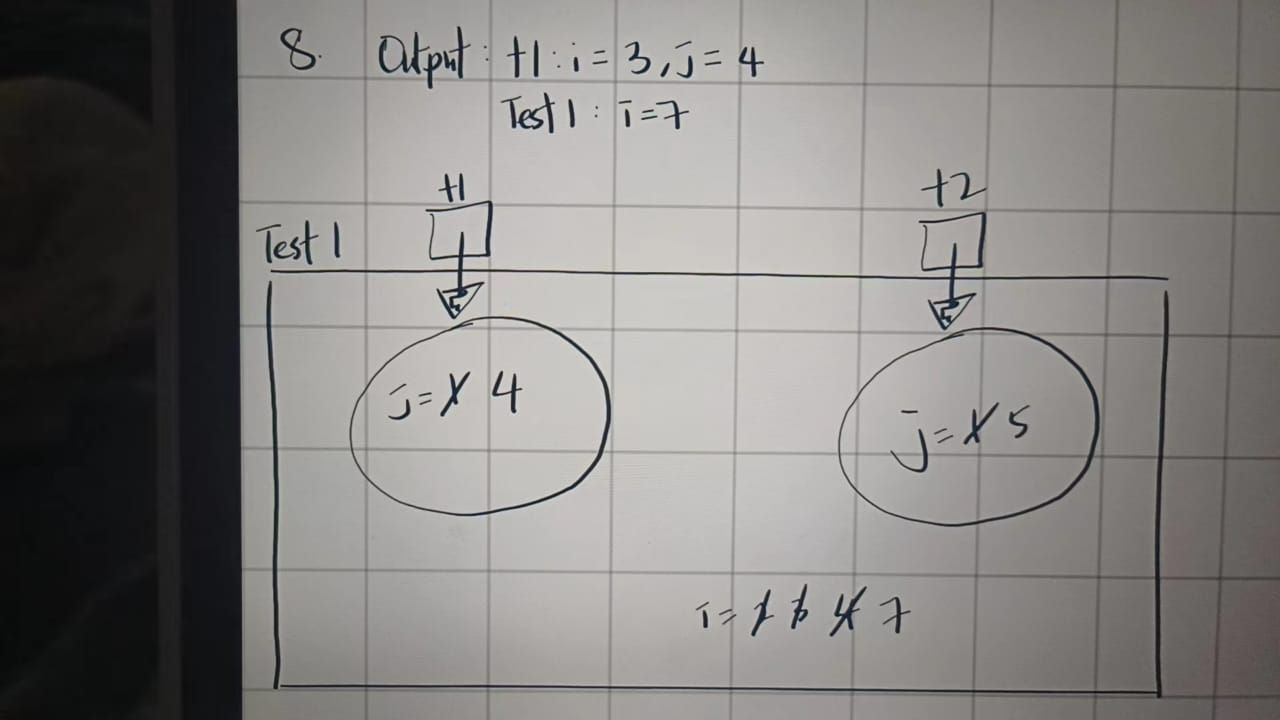 8. Output: t1: i = 3, j = 4
Test 1: i = 7
t1
t2
Test 1
j = 4
j = 5
i = 4 7